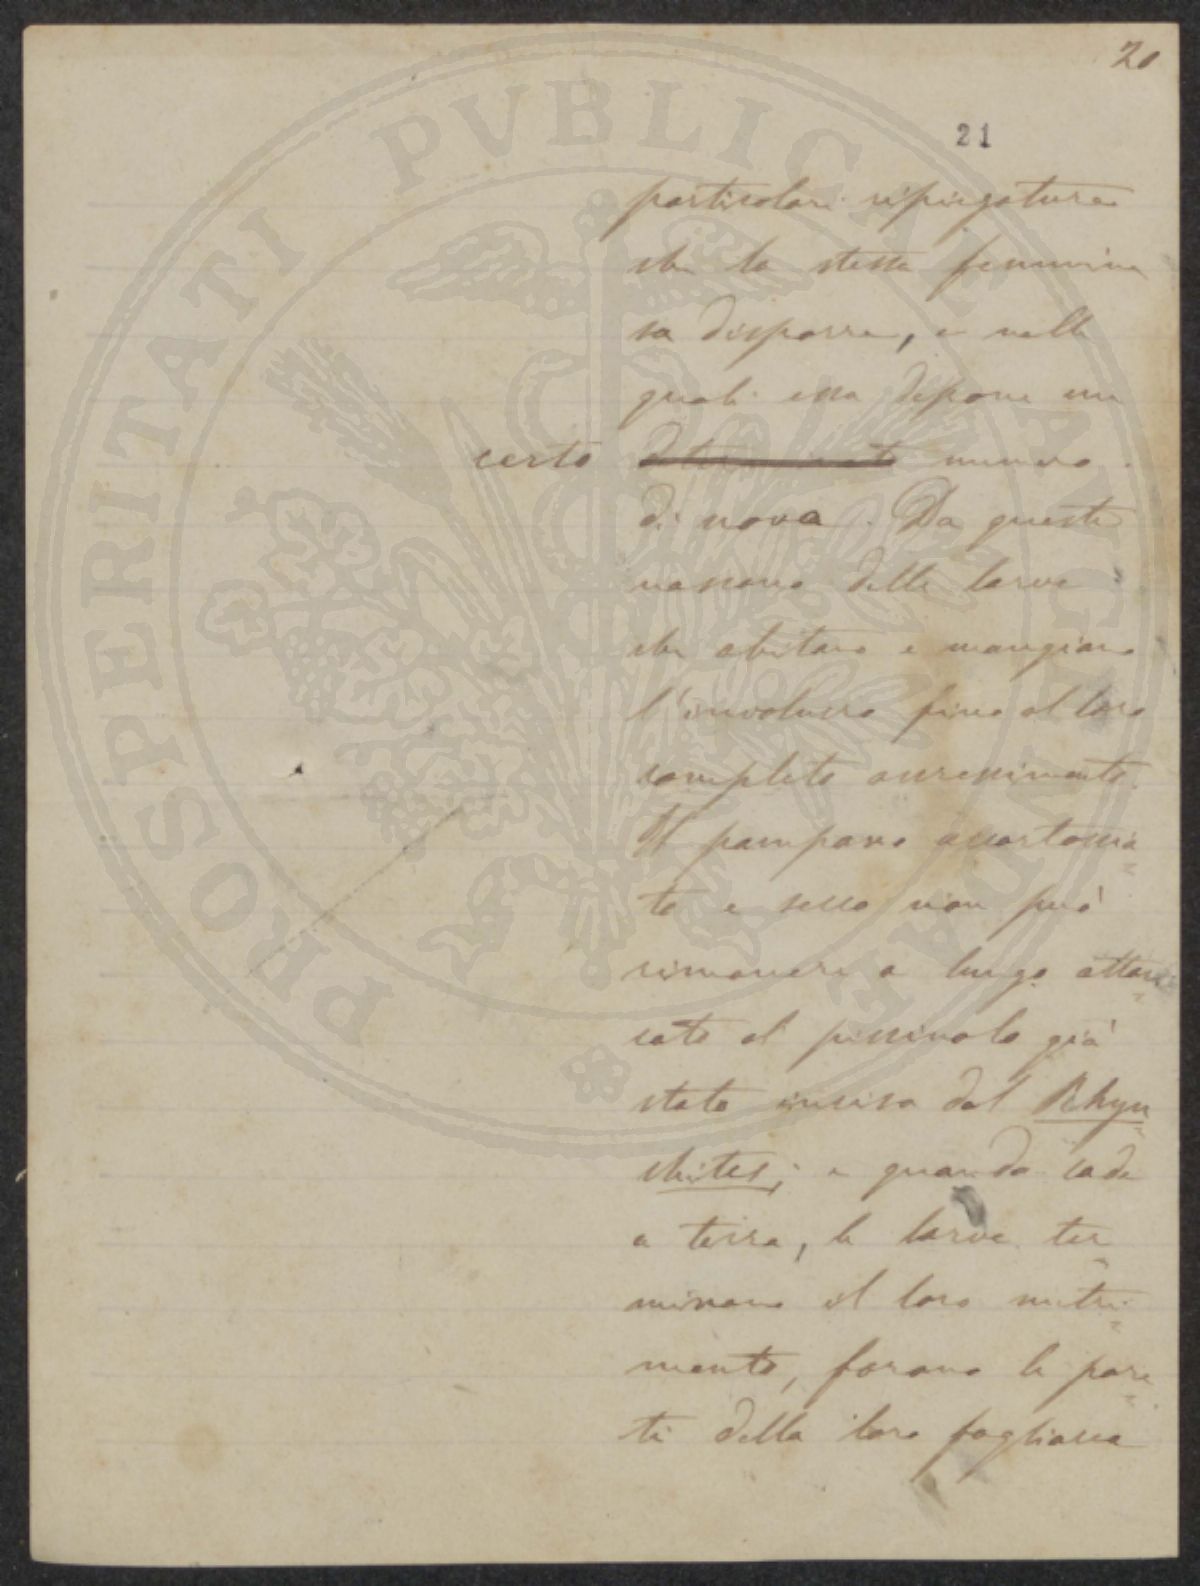 20
21
particolari ripiegature
che la stessa femmina
sa disporre, e nelle
quali essa depone un
certo determinato numero
di uova. Da queste
nascono delle larve
che abitano e mangiano
l'involucro fino al loro
completo accrescimento.
Il pampano accartoccia=
to e secco non può
rimanere a lungo attac=
cato al picciuolo già
stato inciso dal Rhyn=
chites; e quando cade
a terra, le larve ter=
minano il loro nutri=
mento, forano le pare=
ti della loro fogliacea
PROSPERITATI PVBLICAE AVGENDAE